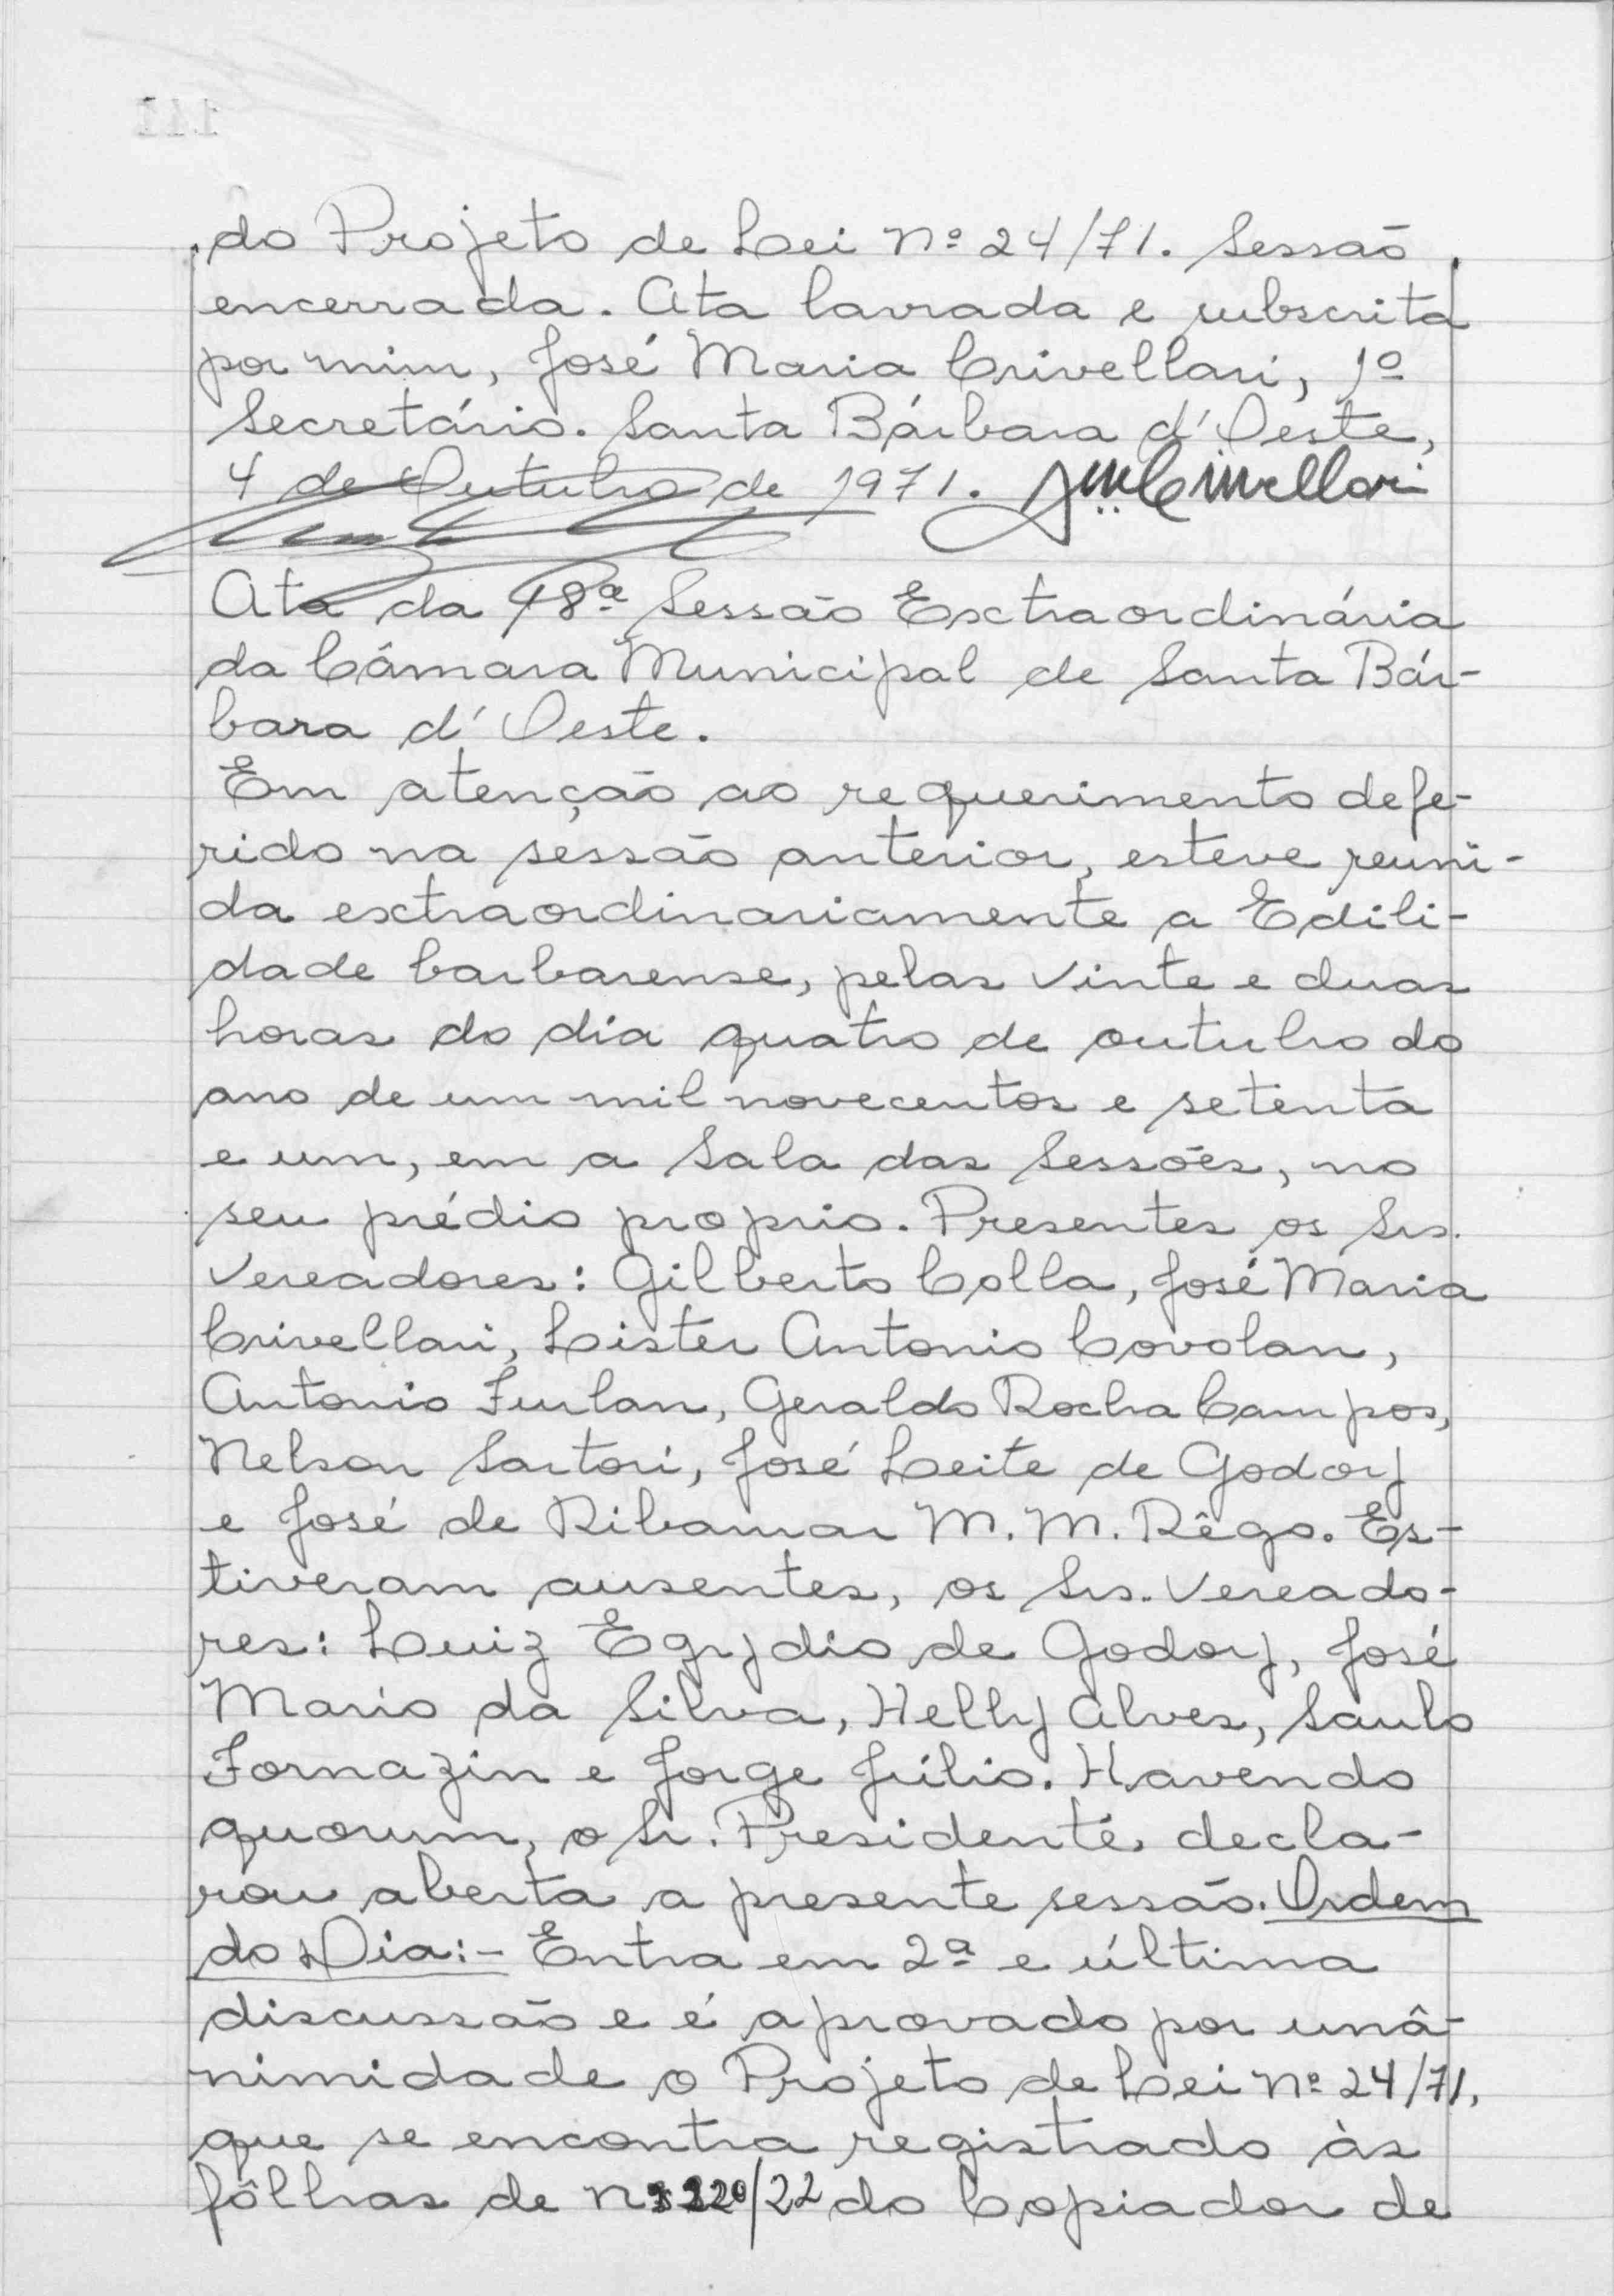 do Projeto de Lei nº 24/71. Sessão
encerrada. Ata lavrada e subscrita
por mim, José Maria Crivellari, 1º
Secretário. Santa Bárbara d'Oeste,
4 de Outubro de 1971. JMCrivellari
Ata da 18ª Sessão Extraordinária
da Câmara Municipal de Santa Bár-
bara d'Oeste.
Em atenção ao requerimento defe-
rido na sessão anterior, esteve reuni-
da extraordinariamente a Edili-
dade barbarense, pelas vinte e duas
horas do dia quatro de outubro do
ano de um mil novecentos e setenta
e um, em a Sala das Sessões, no
seu prédio proprio. Presentes os Srs.
Vereadores: Gilberto Colla, José Maria
Crivellari, Lister Antonio Covolan,
Antonio Furlan, Geraldo Rocha Campos,
Nelson Sartori, José Leite de Godoy
e José de Ribamar M. M. Rêgo. Es-
tiveram ausentes, os Srs. Vereado-
res: Luiz Egydio de Godoy, José
Mario da Silva, Helly Alves, Saulo
Fornazin e Jorge Júlio. Havendo
quorum, o Sr. Presidente, decla-
rou aberta a presente sessão. Ordem
do Dia:- Entra em 2ª e última
discussão e é aprovado por unâ-
nimidade o Projeto de Lei nº 24/71,
que se encontra registrado às
fôlhas de /22 do Copiador de